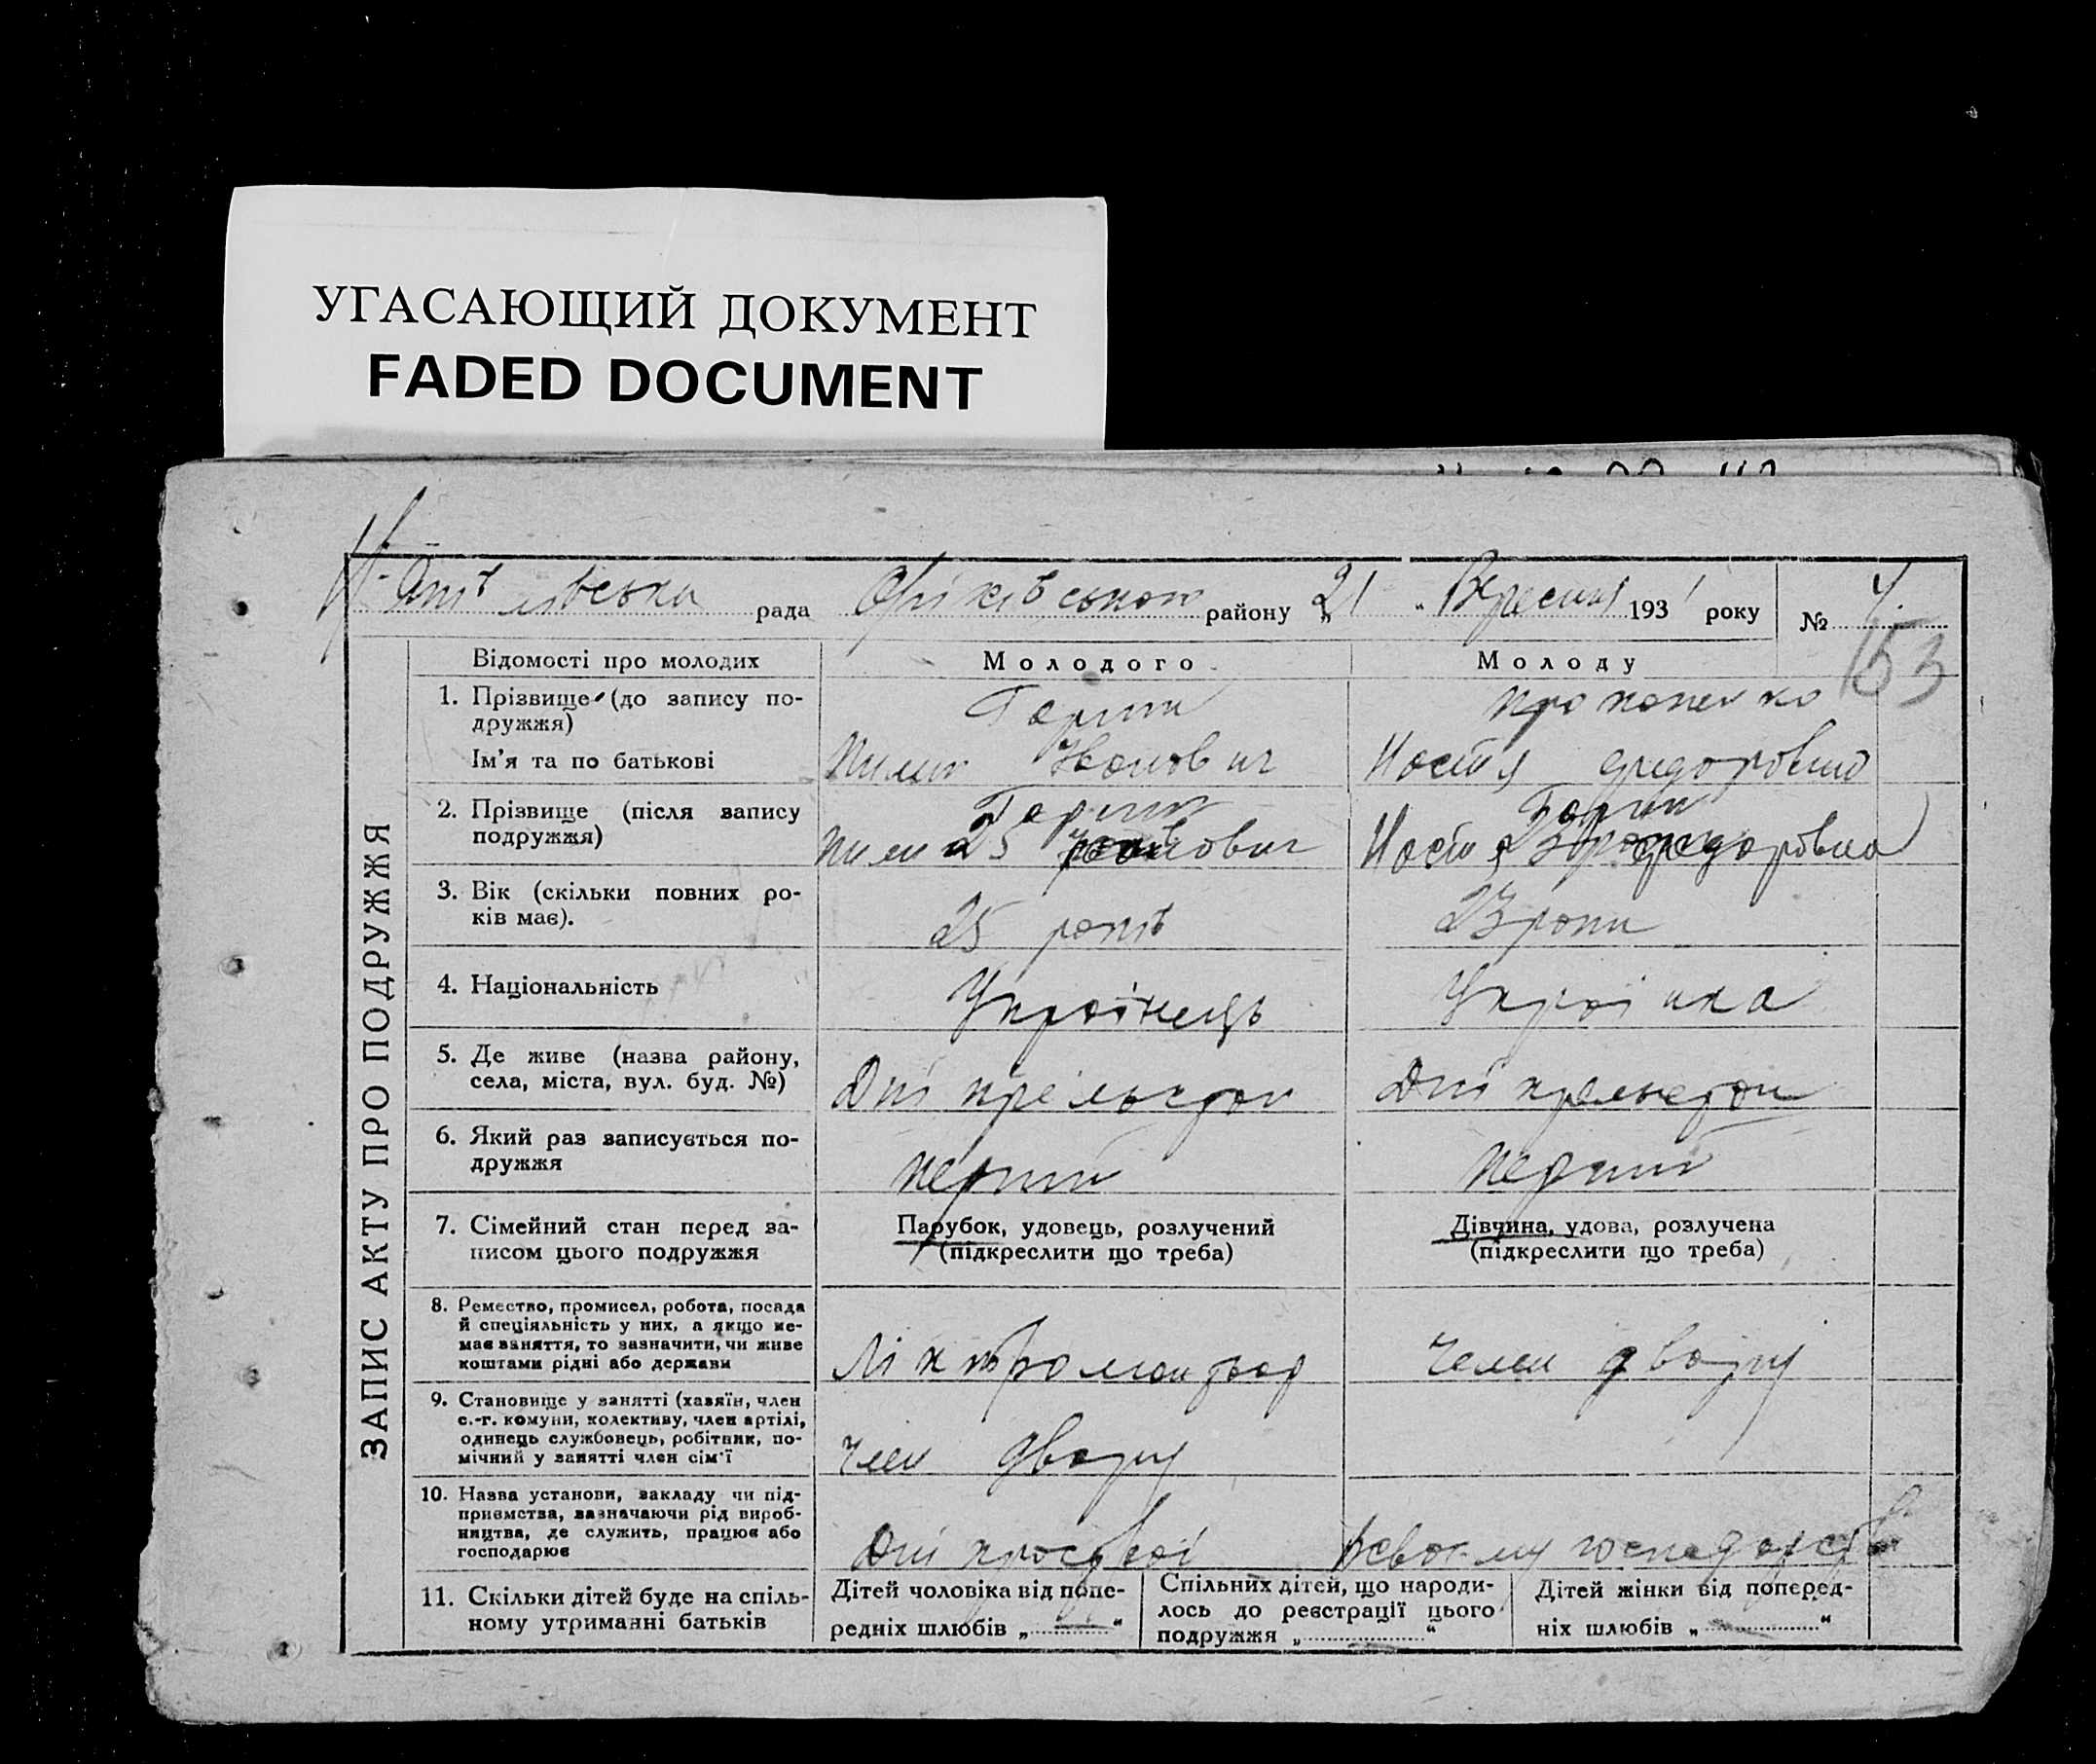 УГАСАЮЩИЙ ДОКУМЕНТ
FADED DOCUMENT
рада Оріхівського району „21 " Вересня 1931 року № 4.
153
ЗАПИС АКТУ ПРО ПОДРУЖЖЯ
Відомості про молодих
Молодого
Молоду
1. Прізвище (до запису по-
дружжя)
Ім'я та по батькові
Пилип Іванович
Настя Федоровна
2. Прізвище (після запису
подружжя)
25
3. Вік (скільки повних ро-
ків має).
25 років
23 роки
4. Національність
Українець
Українка
5. Де живе (назва району,
села, міста, вул. буд. №)
Дніпрельсдон
Дніпрельсдон
6. Який раз записується по-
дружжя
перший
перший
7. Сімейний стан перед за-
писом цього подружжя
Парубок, удовець, розлучений
(підкреслити що треба)
Дівчина, удова, розлучена
(підкреслити що треба)
8. Ремество, промисел, робота, посада
й спеціяльність у них, а якщо не-
має заняття, то зазначити, чи живе
коштами рідні або держави
член двору
9. Становище у занятті (хазяїн, член
с.-г. комуни, колективу, член артілі,
одинець службовець, робітник, по-
мічний у занятті член сім'ї
член двору
10. Назва установи, закладу чи під-
приємства, зазначаючи рід вироб-
ництва, де служить, працює або
господарює
Дніпрострой
в своєму господарстві
11. Скільки дітей буде на спіль-
ному утриманні батьків
Дітей чоловіка від попе-
редніх шлюбів „ — "
Спільних дітей, що народи-
лось до реєстрації цього
подружжя „ — "
Дітей жінки від поперед-
ніх шлюбів „ — "